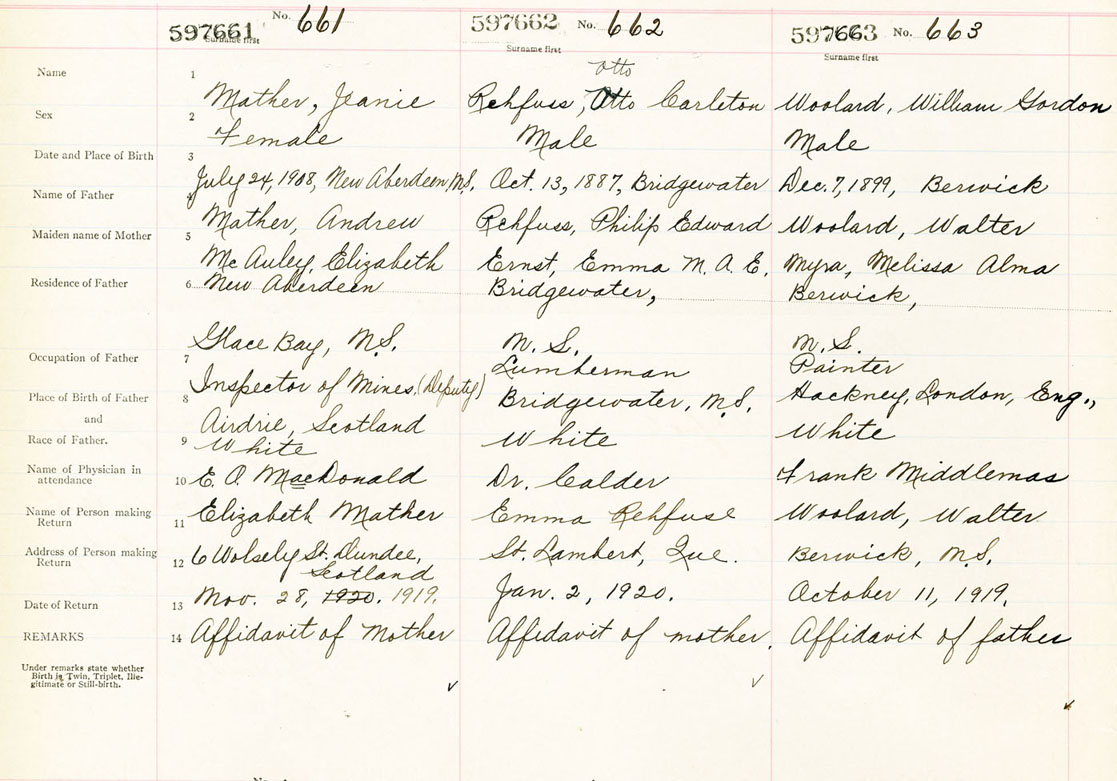 597661 No. 661 597662 No. 662 597663 No. 663
Surname first Surname first Surname first
Otto
Name 1 Mather, Jeanie Rehfuss, Otto Carleton Woolard, William Gordon
Sex 2 Female Male Male
Date and Place of Birth 3 July 24, 1908, New Aberdeen, N.S. Oct. 13, 1887, Bridgewater Dec. 7, 1899, Berwick
Name of Father 4 Mather, Andrew Rehfuss, Philip Edward Woolard, Walter
Maiden name of Mother 5 McAuley, Elizabeth Ernst, Emma M. A. E. Myra, Melissa Alma
Residence of Father 6 New Aberdeen Bridgewater, Berwick,
Glace Bay, N.S. N.S. N.S.
Occupation of Father 7 Inspector of Mines (Deputy) Lumberman Painter
Place of Birth of Father 8 Airdrie, Scotland Bridgewater, N.S. Hackney, London, Eng.,
and
Race of Father. 9 White White White
Name of Physician in
attendance 10 E. O. MacDonald Dr. Calder Frank Middlemas
Name of Person making
Return 11 Elizabeth Mather Emma Rehfuse Woolard, Walter
Address of Person making
Return 12 6 Wolsely St. Dundee, St. Lambert, Que. Berwick, N.S.
Scotland
Date of Return 13 Nov. 28, 1920. 1919. Jan. 2, 1920. October 11, 1919.
REMARKS 14 Affidavit of Mother Affidavit of mother. Affidavit of father
Under remarks state whether
Birth is Twin, Triplet, Ille-
gitimate or Still-birth.